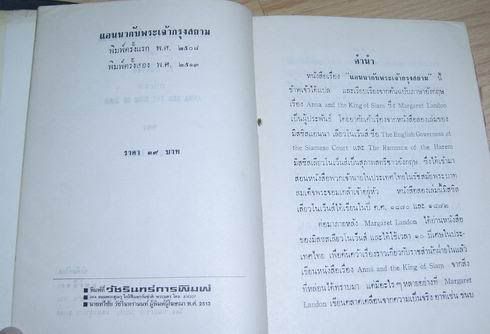 แอนนากับพระเจ้ากรุงสยาม
พิมพ์ครั้งแรก พ.ศ. ๒๕๐๘
พิมพ์ครั้งสอง พ.ศ. ๒๕๑๓
ราคา ๓๙ บาท
พิมพ์ที่ วัชรินทร์การพิมพ์
พ.ศ. 2513
คำนำ
หนังสือเรื่อง "แอนนากับพระเจ้ากรุงสยาม" นี้
ข้าพเจ้าได้แปล และเรียบเรียงจากต้นฉบับภาษาอังกฤษ
เรื่อง Anna and the King of Siam ซึ่ง Margaret Landon
เป็นผู้ประพันธ์ โดยอาศัยเค้าเรื่องจากหนังสือสองเล่มของ
มิสซิสแอนนา เลียวโนเว็นส์ ชื่อ The English Governess of
the Siamese Court และ The Ramance of the Harem
มิสซิสเลียวโนเว็นส์เป็นสุภาพสตรีชาวอังกฤษ ซึ่งได้เข้ามา
สอนหนังสือพวกเจ้านายในประเทศไทยในรัชสมัยพระบาท
สมเด็จพระจอมเกล้าเจ้าอยู่หัว หนังสือสองเล่มนี้มิสซิส
เลียวโนเว็นส์ได้เขียนในปี ค.ศ. ๑๘๗๐ และ ๑๘๗๒
ต่อมาภายหลัง Margaret Landon ได้อ่านหนังสือ
ของมิสซิสเลียวโนเว็นส์ และได้ใช้เวลา ๑๐ ปีเศษในประเทศ
ไทย เพื่อค้นคว้าเรื่องราวเกี่ยวกับราชสำนักฝ่ายในแล้ว
เขียนหนังสือเรื่อง Anna and the King of Siam จากสิ่ง
ที่หล่อนได้ทราบมา แต่มีอะไรๆ หลายอย่างที่ Margaret
Landon เขียนคลาดเคลื่อนจากความเป็นจริง อาทิเช่น ขนบ